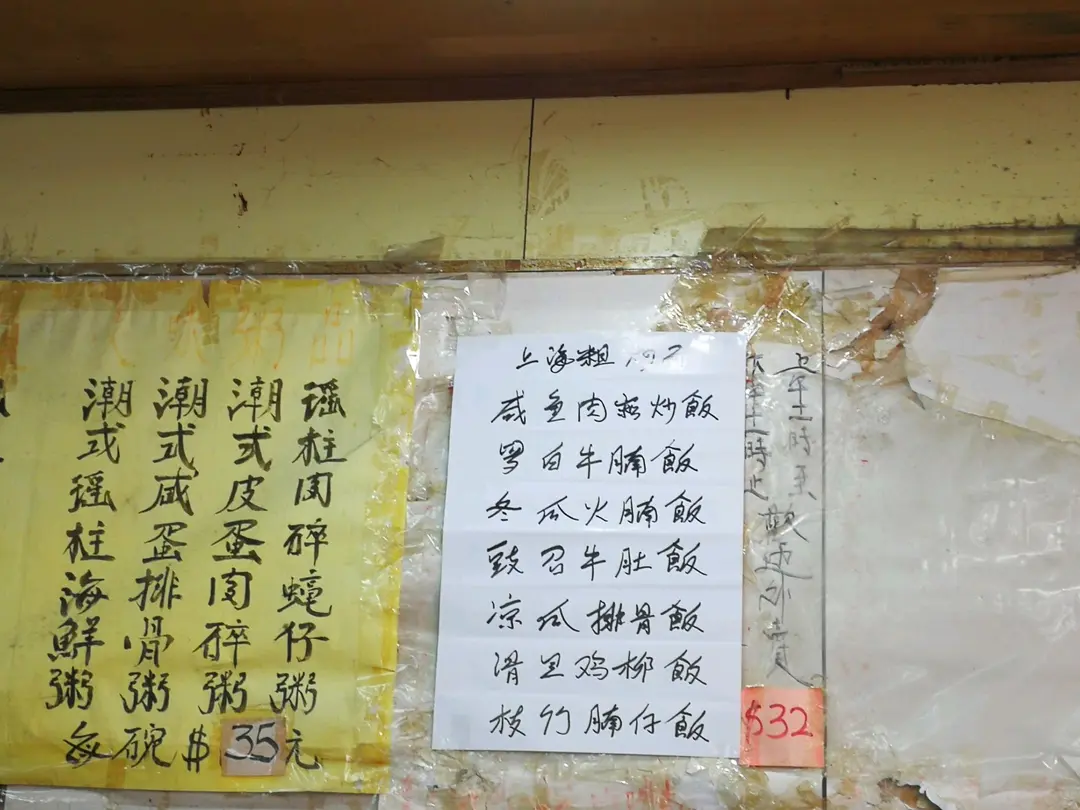 粥品
瑶柱肉碎蠔仔粥
潮式皮蛋肉碎粥
潮式咸蛋排骨粥
潮式瑶柱海鮮粥
每碗$35元
上海粗
咸鱼肉松炒飯
罗白牛腩飯
冬瓜火腩飯
豉召牛肚飯
凉瓜排骨飯
滑旦鸡柳飯
枝竹腩仔飯
上午十一時至
歡迎外賣
$32